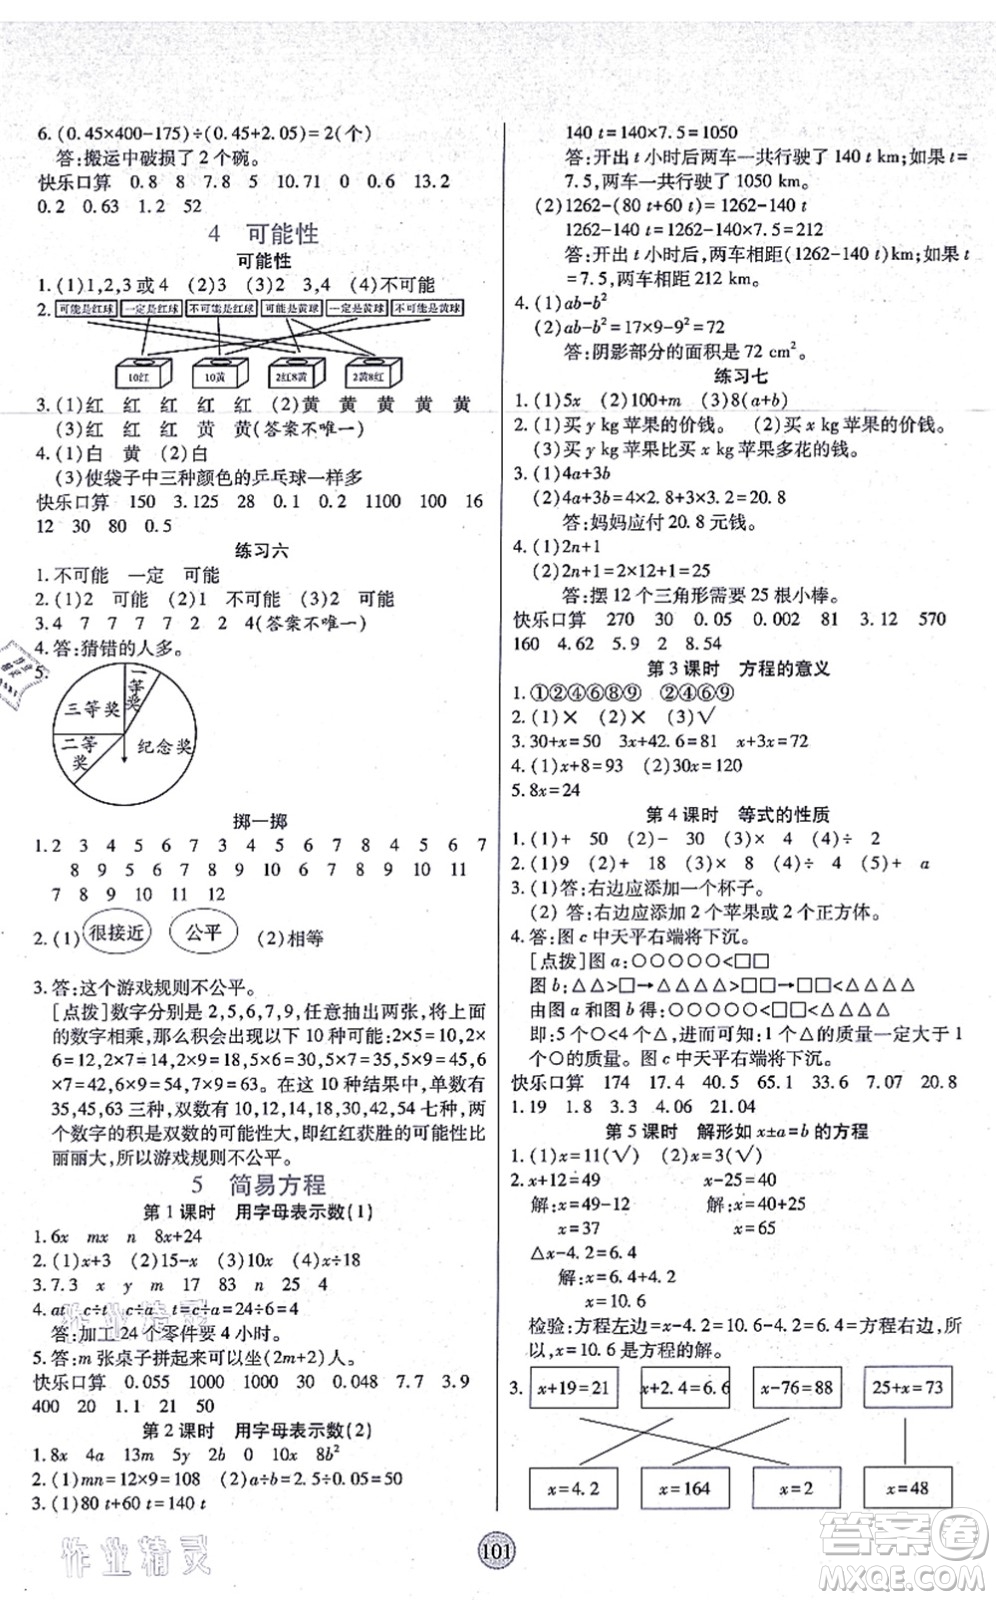 6.(0.45×400-175)÷(0.45+2.05)=2(个)
答:搬运中破损了 2 个碗。
快乐口算 0.8 8 7.8 5 10.71 0 0.6 13.2
0.2 0.63 1.2 52
4 可能性
可能性
1.(1)1,2,3或4 (2)3 (3)2 3,4 (4)不可能
2. 可能是红球 一定是红球 不可能是红球 可能是黄球 一定是黄球 不可能是黄球
10红 10黄 2红8黄 2黄8红
3.(1)红 红 红 红 红 (2)黄 黄 黄 黄 黄
(3)红 红 红 黄 黄(答案不唯一)
4.(1)白 黄 (2)黄
(3)使袋子中三种颜色的乒乓球一样多
快乐口算 150 3.125 28 0.1 0.2 1100 100 16
12 30 80 0.5
练习六
1.不可能 一定 可能
2.(1)2 可能 (2)1 不可能 (3)可能
3.4 7 7 7 7 2 2 4(答案不唯一)
4.答:猜错的人多。
5.
一等奖
三等奖
二等奖
纪念奖
掷一掷
1.2 3 4 5 6 7 3 4 5 6 7 8 4 5 6 7
8 9 5 6 7 8 9 10 6 7 8 9 10 11
7 8 9 10 11 12
2.(1) 很接近 公平 (2)相等
3.答:这个游戏规则不公平。
[点拨]数字分别是 2,5,6,7,9,任意抽出两张,将两张
的数字相乘,那么积会出现以下 10 种可能:2×5=10,2×
6=12,2×7=14,2×9=18,5×6=30,5×7=35,5×9=45,6
×7=42,6×9=54,7×9=63。在这 10 种结果中,单数有
35,45,63 三种,双数有 10,12,14,18,30,42,54 七种,两
个数字的积是双数的可能性大,即红红获胜的可能性比
丽丽大,所以游戏规则不公平。
5 简易方程
第 1 课时 用字母表示数(1)
1.6x mx n 8x+24
2.(1)x+3 (2)15-x (3)3x
3.7.3 x y m 17 83 n 24
4.at c÷t c÷a t=c÷a=24÷6=4
答:加工 24 个零件要 4 小时。
5.答:m 张桌子拼起来可以坐(2m+2)人。
快乐口算 0.055 1000 1000 30 0.048 7.7 3.9
400 20 1.1 21 50
第 2 课时 用字母表示数(2)
1.8x 4a 13m 5y 2b 0 10x 8b²
2.(1)mn=12×9=108 (2)a÷b=2.5÷0.05=50
3.(1)80 t+60 t=140 t
140 t=140×7.5=1050
答:开出 t 小时后两车一共行驶了 140 t km;如果 t=
7.5,两车一共行驶了 1050 km。
(2)1262-(80 t+60 t)=1262-140 t
1262-140 t=1262-140×7.5=212
答:开出 t 小时后,两车相距(1262-140 t)km;如果 t
=7.5,两车相距 212 km。
4.(1)ab-b²
(2)ab-b²=17×9-9²=72
答:阴影部分的面积是 72 cm²。
练习七
1.(1)5x (2)100+m (3)8(a+b)
2.(1)买 y kg 苹果的价钱。 (2)买 x kg 苹果的价钱。
(3)买 y kg 苹果比买 x kg 苹果多花的价钱。
3.(1)4a+3b
(2)4a+3b=4×2.8+3×3.2=20.8
答:妈妈应付 20.8 元钱。
4.(1)2n+1
(2)2n+1=2×12+1=25
答:摆 12 个三角形需要 25 根小棒。
快乐口算 270 30 0.05 0.002 81 0.1 570
160 4.62 5.9 2 8.54
第 3 课时 方程的意义
1.①②④⑥⑧⑨ ②④⑥⑨
2.(1)× (2)× (3)√
3.30+x=50 3x+42.6=81 x+3x=72
4.(1)x+8=93 (2)4x-20=120
5.8x=24
第 4 课时 等式的性质
1.(1)+ 50 (2)- 30 (3)× 4 (4)÷ 2
2.(1)9 (2)+ 18 (3)× 8 (4)÷ 2 (5)+ a
3.(1)答:右边应添加一个杯子。
(2)答:右边应添加 2 个苹果或 2 个正方体。
4.答:图 c 中天平右端将下沉。
[点拨]图 a:○○○○○<□□
图 b:△△>□→△△△△>□□→□□<△△△△
由图 a 和图 b 得:○○○○○<□□<△△△△
即:5 个○<4 个△,进而可知:1 个△的质量一定大于 1
个○的质量。图 c 中天平右端将下沉。
快乐口算 174 17.4 40.5 65.1 33.6 7.07 20.8
1.19 1.8 3.3 4.06 21.04
第 5 课时 解形如 x±a=b 的方程
1.(1)x=11(√) (2)x=154(√)
2.x+12=49 x-25=40
解:x=49-12 解:x=40+25
x=37 x=65
△x-4.2=6.4
解:x=6.4+4.2
x=10.6
检验:方程左边=x-4.2=10.6-4.2=6.4=方程右边,所
以,x=10.6 是方程的解。
3. x+19=21 x+2.4=6.6 x-76=88 25+x=73
x=4.2 x=164 x=2 x=48
101
作业精灵
作业精灵
答案卷
MXQE.COM